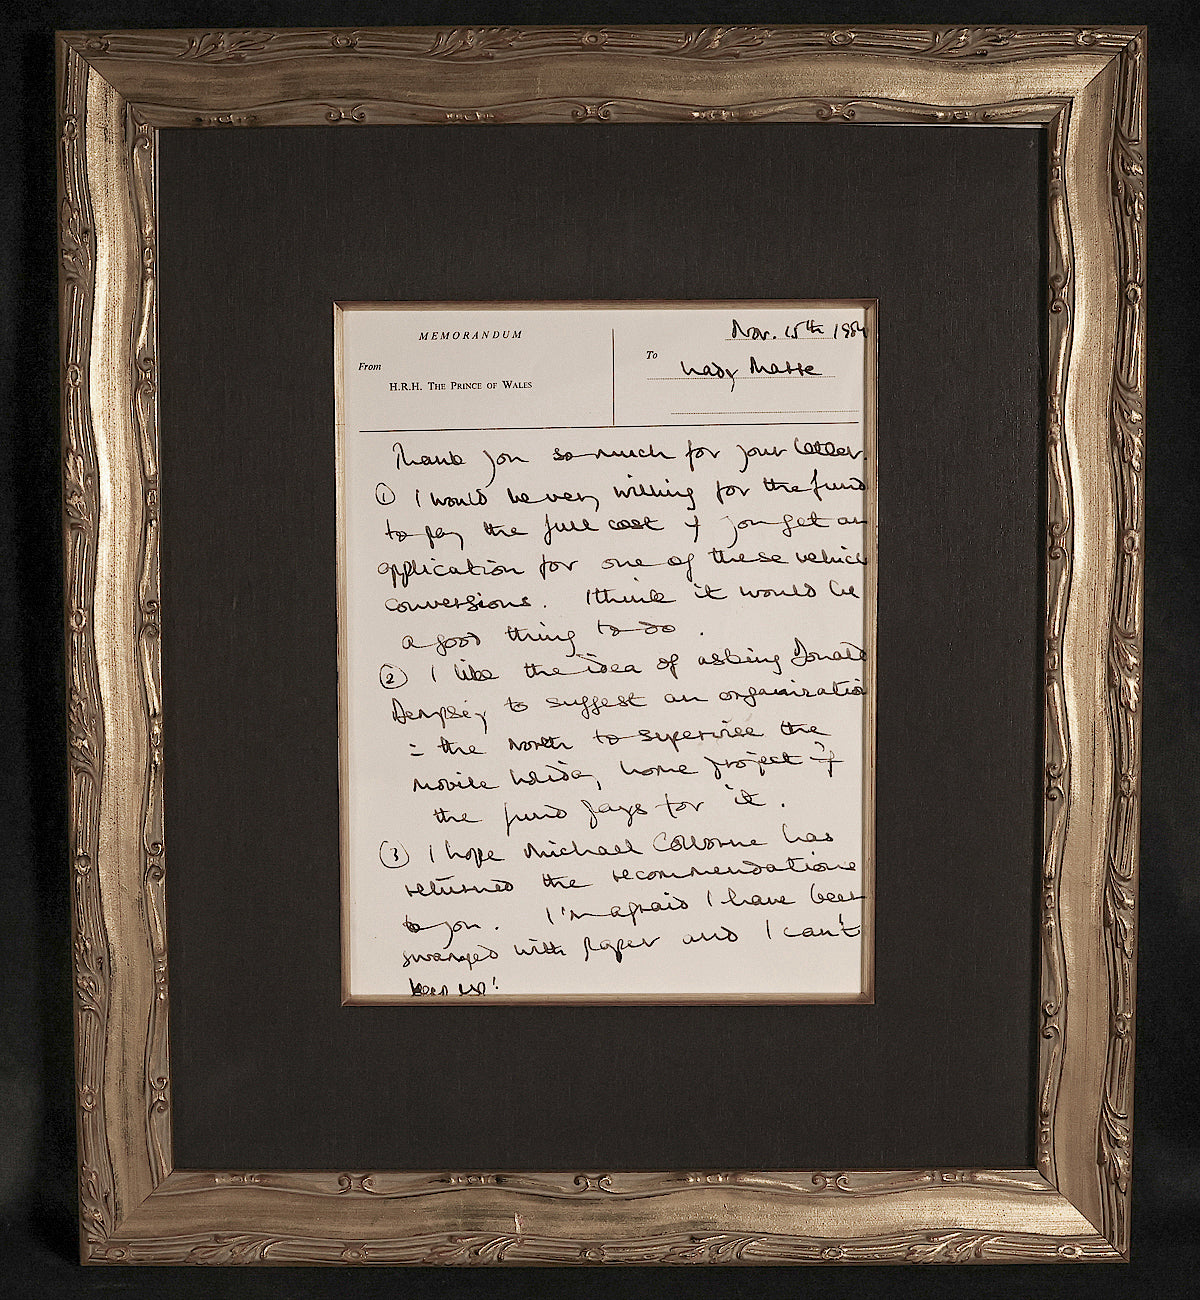 MEMORANDUM
From
H.R.H. The Prince of Wales
Nov. 15th 1984
To
Lady
Thank you so much for your letter.
① I would be very willing for the fund
to pay the full cost if you get an
application for one of these vehicle
conversions. I think it would be
a good thing to do.
② I like the idea of asking Donald
Dempsey to suggest an organizatio
= the North to supervise the
mobile holiday home project if
the fund pays for it.
③ I hope Michael Colborne has
returned the recommendations
to you. I'm afraid I have been
swamped with paper and I can't
keep up!